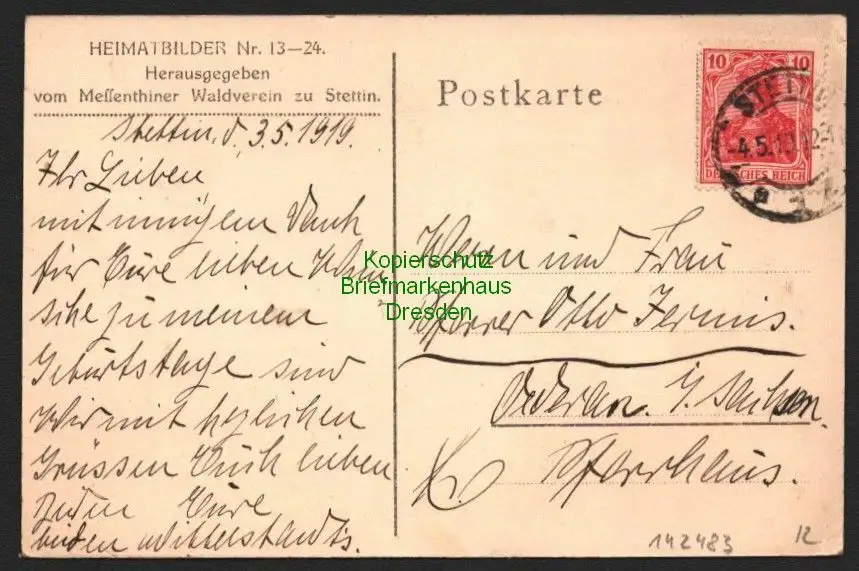 HEIMATBILDER Nr. 13—24.
Herausgegeben
vom Messenthiner Waldverein zu Stettin.
Stettin, d. 3.5.1919.
Ihr Lieben
mit innigem Dank
für Eure lieben Wün
sche zu meinem
Geburtstage sind
Wir mit herzlichen
Grüssen Euch lieben
Eure
beiden Mittelstaedts.
Postkarte
10 10
DEUTSCHES REICH
STETTIN
-4.5.19.12-1
Herrn und Frau
Pfarrer Otto Fermis.
Oederan. i/ Sachsen.
Pfarrhaus.
Kopierschutz
Briefmarkenhaus
Dresden
142483
12